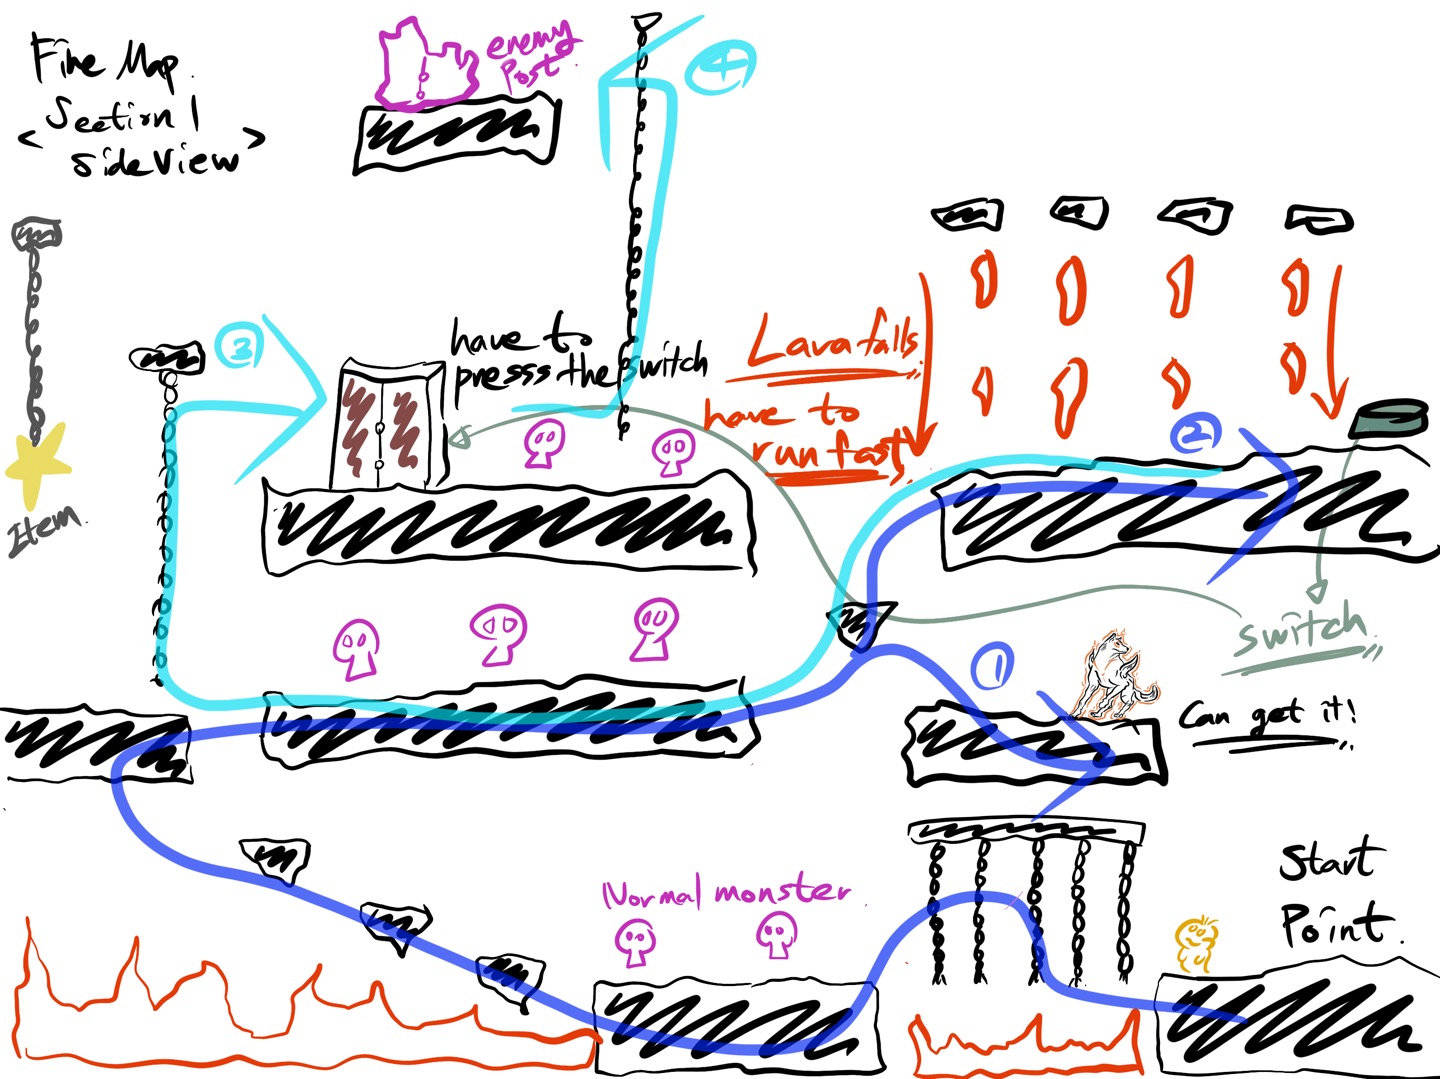 Fire Map.
Section 1
< Side View >
enemy
Post
4
3
have to
presss the switch
Lava falls
have to
run fast!
2
Item.
switch
1
Can get it!
Start
Point.
Normal monster